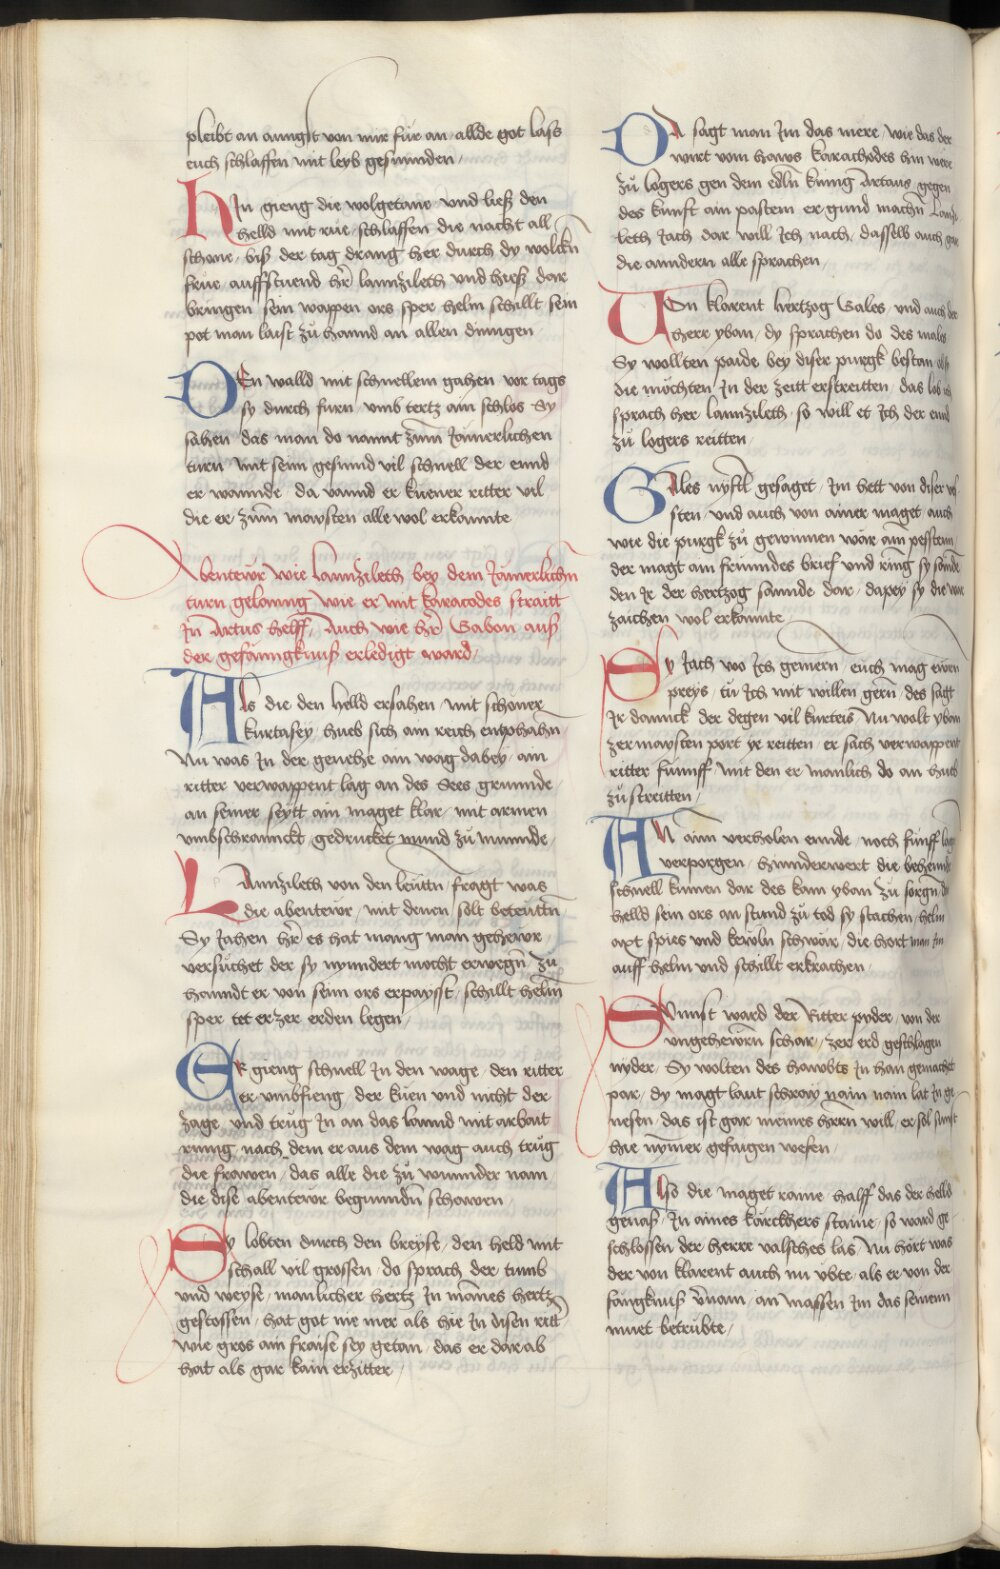 pleibt an anngst von mir für an allde got lass
euch schlaffen mit leyb gesunnden /
HIn gieng die wolgetane vnd ließ den
helld mit rue schlaffen die nacht all
schone / biß der tag drang her durch dy wolckn̄
frue auffstuend hr̄ lannzileth vnd hieß dar
bringen sein wappen ors sper helm schillt sein
pot man laist zů hannd an allen dinngen
DEn walld mit schnellem gahen vor tags
sy durch furn vmb tertz ain schlos Sy
sahen das man do nannt zum̄ Jamerlichen
turn mit seim gesinnd vil schnell der ennd
er wannde da vannd er kuener ritter vil
die er zum̄ maysten alle wol erkannte
Abentewr wie Lannzileth bey dem Jamerlichn̄
turn gelanng wie er mit karacodes straitt
Jn Artus helff / Auch wie hr̄ Gabon auß
der gefanngknuß erledigt ward /
Als die den helld ersahen mit schoner
kurtasey / hueb sich ain reich enphahn̄
Nu was Jn der genehe ain wag dabey / ain
ritter verwappent lag an des Sees grunnde /
an seiner seytt ain maget klar / mit armen
vmbschrannckt gedrucket mund zu munnde /
LAnnzileth von den leutn̄ / fragt was
die abentewr / mit denen solt betewttn̄
Sy Jahen hr̄ es hat mang man gehewr /
versuchet der sy nynndert mocht erwegn̄ zu
hanndt er von seim ors erpaysst / schillt helm̄
sper tet er zer erden legen /
ER gieng schnell Jn den wage / den ritter
er vmbfieng / der kuen vnd nicht der
zage / vnd trug Jn an das lannd mit arbait
rinng / nach dem er aus dem wag auch trug
die frawen / das alle die zu wunnder nam
die dise abentewr begunndn̄ schawen
Sy lobten durch den breyse / den held mit
schall vil grossen / do sprach der tumb
vnd weyse / manlicher hertz Jn mannes hertz
gestossen / hat got nie mer als hie Jn disen ritt̄
wie gros ain fraise sey getan / das er darab
hat als gar kain erzitter /
DA sagt man Jm das mere / wie das der
wirt vom hawß karachodes hin were
zů logers gen dem edln̄ kunig Artaus gegen
des kunft ain pastein er gund machn̄
leth Jach dar will Jch nach / dasselb auch
die anndern alle sprachen /
VOn klarent hertzog Gales / vnd auch der
herr yban / dy sprachen do des males
Sy wollten paide bey diser purgk bestan
die mochten Jn der zeitt erstreitten / das lob
sprach her lannzileth / so will et Jch der ennd
zů logers reitten
GAles nyfftl gesaget / Jm hett von diser
sten / vnd auch von ainer maget auch
wie die purgk zů gewunnen wär am pessten
der magt ain frunndes brief vnd ring sy sannde
den Jr der hertzog sannde dar / dapey sy die war
zaichen wol erkannte
Sy Jach wo Jch gemern / euch mag ewrn
preys / tů Jch mit willen gern̄ / des sagt
Jr dannck der degen vil kurteis Nu wolt yban
zer maysten port yr reitten / er sach verwappent
ritter funnff mit den er manlich do an hueb
zů streitten /
AN aim verholen ennde / noch funff
verporgen / hinnderwert die behennd
schnell kumen dar des kam yban zů sorgn̄
helld sein ors an stund zů tod sy stachen / helm
axt spies vnd kewln schwär / die hort man Jm
auff helm vnd schillt erkrachen /
Sunst ward der Ritter pyder / von der
vngehewrn̄ schar / zer erd geschlagen
nyder / Sy wolten des hawbts Jn han gemacht
par / dy magt laut schray nain nain lat Jn ge
nesen / das ist gar meines herrn will / er sol sunst
hie nymer gefangen wesen /
Also die maget raine / halff das der helld
genaß / Jn aines kärckhers staine / so ward ge
schlossen der herre valsches las / Nu hort was
der von klarent auch nu vbte / als er von der
fängknuß v̄nam / an massen Jm das seinenn
muet betrubte /